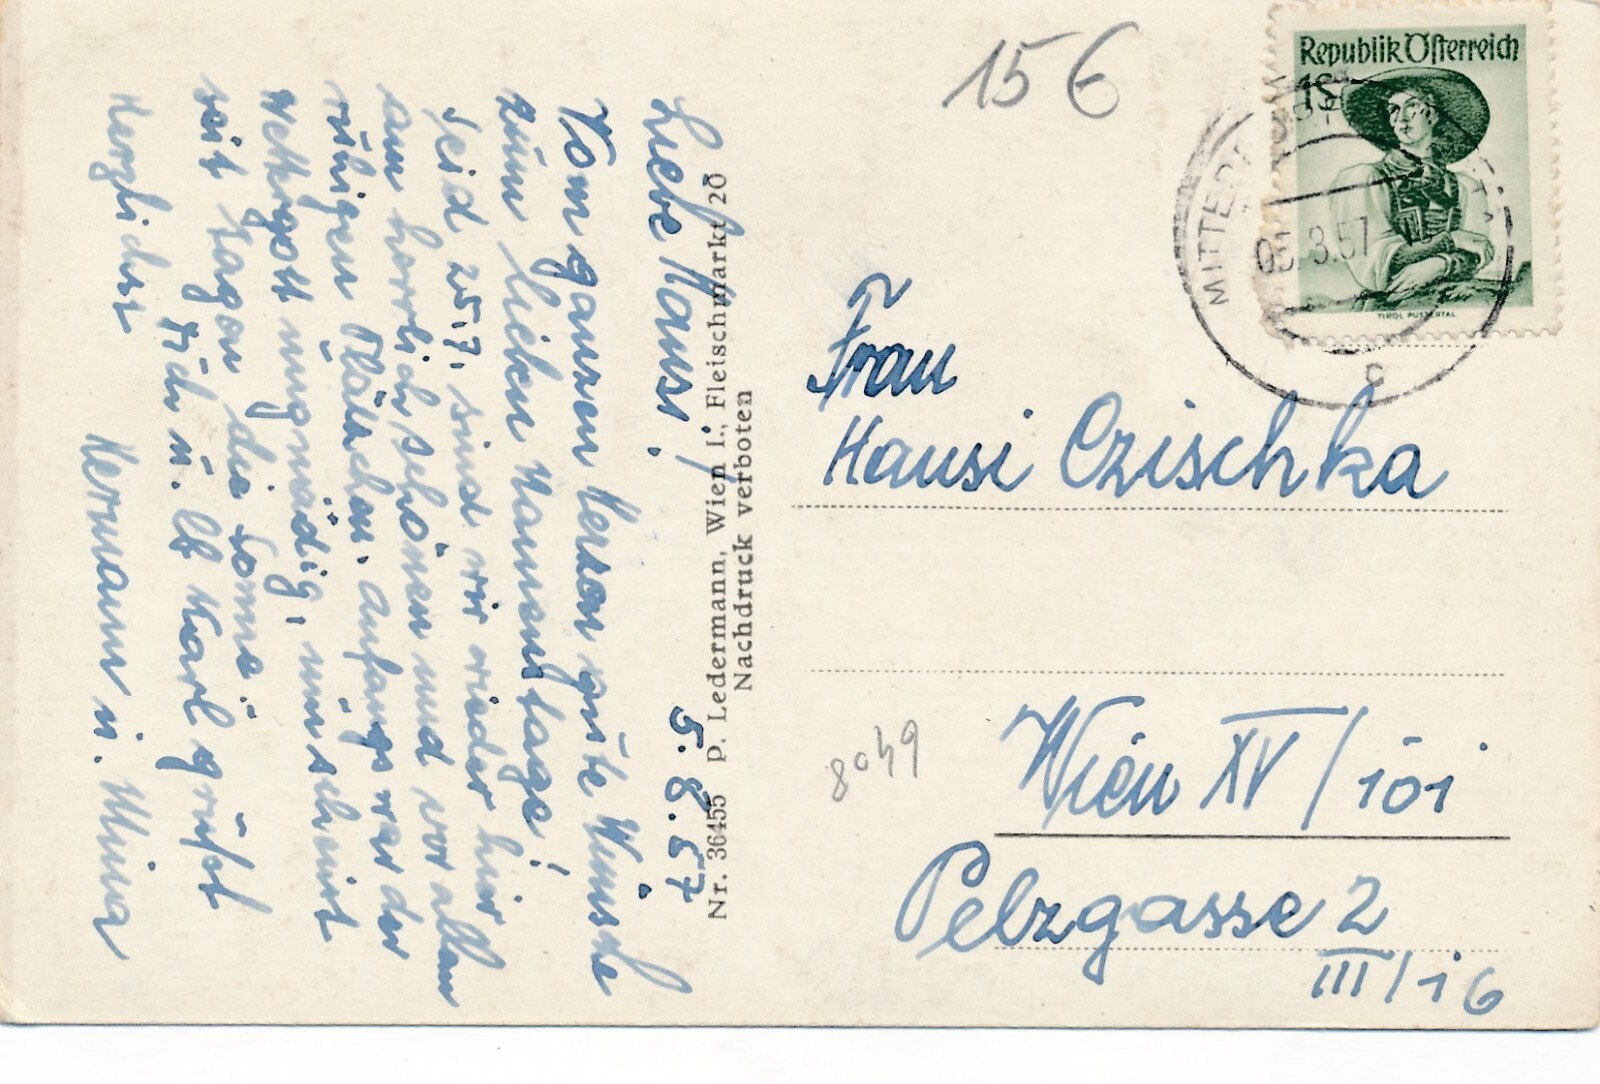 Liebe Hansi! 5.8.57
Vom ganzen Herzen gute Wünsche
zum lieben Namenstage!
Seid 25.7. sind wir wieder hier
am herrlich schönen und vor allem
ruhigen Plätzchen. Anfangs war der
Wettergott ungnädig, nun scheint
seit Tagen die Sonne.
Dich u. lb Karl grüßt
Herzlichst Hermann u. Minna
Nr. 36455 P. Ledermann, Wien I., Fleischmarkt 20
Nachdruck verboten
15 €
Republik Österreich
1S
TIROL PUSTERTAL
8.57
C
Frau
Hansi Czischka
Wien XV/101
Pelzgasse 2
III/16
8049